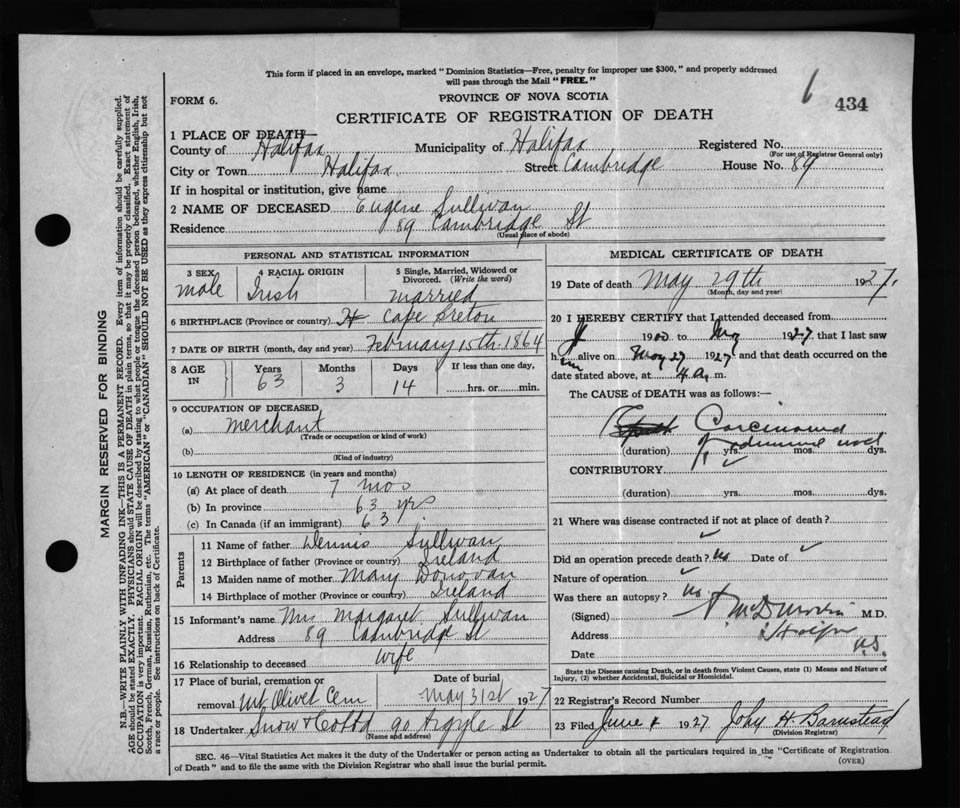 This form if placed in an envelope, marked "Dominion Statistics—Free, penalty for improper use $300," and properly addressed
will pass through the Mail "FREE."
FORM 6.
PROVINCE OF NOVA SCOTIA
434
CERTIFICATE OF REGISTRATION OF DEATH
1 PLACE OF DEATH—
County of Halifax Municipality of Halifax Registered No.
(For use of Registrar General only)
City or Town Halifax Street Cambridge House No. 89
If in hospital or institution, give name
2 NAME OF DECEASED Eugene Sullivan
Residence 89 Cambridge St
(Usual place of abode)
PERSONAL AND STATISTICAL INFORMATION
3 SEX 4 RACIAL ORIGIN 5 Single, Married, Widowed or
Divorced. (Write the word)
Male Irish Married
6 BIRTHPLACE (Province or country) Cape Breton
7 DATE OF BIRTH (month, day and year) February 15th 1864
8 AGE IN Years Months Days If less than one day,
63 3 14 hrs. or min.
9 OCCUPATION OF DECEASED
(a) Merchant
(Trade or occupation or kind of work)
(b)
(Kind of industry)
10 LENGTH OF RESIDENCE (in years and months)
(a) At place of death 7 mos
(b) In province 63 yrs
(c) In Canada (if an immigrant) 63
Parents
11 Name of father Dennis Sullivan
12 Birthplace of father (Province or country) Ireland
13 Maiden name of mother Mary Donovan
14 Birthplace of mother (Province or country) Ireland
15 Informant's name Mrs Margaret Sullivan
Address 89 Cambridge St
16 Relationship to deceased Wife
17 Place of burial, cremation or Date of burial
removal Mt Olivet Cem May 31st 1927
18 Undertaker Snow & Co Ltd 90 Argyle St
(Name and address)
MEDICAL CERTIFICATE OF DEATH
19 Date of death May 29th 1927
(Month, day and year)
20 I HEREBY CERTIFY that I attended deceased from
19 to May 1927 that I last saw
him alive on May 27 1927 and that death occurred on the
date stated above, at 4 a. m.
The CAUSE of DEATH was as follows:—
Carcinoma
(duration) yrs. mos. dys.
CONTRIBUTORY
(duration) yrs. mos. dys.
21 Where was disease contracted if not at place of death?
Did an operation precede death? No Date of
Nature of operation
Was there an autopsy? No
(Signed) M.D.
Address Halifax
Date N.S.
State the Disease causing Death, or in death from Violent Causes, state (1) Means and Nature of
Injury, (2) whether Accidental, Suicidal or Homicidal.
22 Registrar's Record Number
23 Filed June 1927 John H Barnstead
(Division Registrar)
SEC. 46—Vital Statistics Act makes it the duty of the Undertaker or person acting as Undertaker to obtain all the particulars required in the "Certificate of Registration
of Death" and to file the same with the Division Registrar who shall issue the burial permit.
(OVER)
MARGIN RESERVED FOR BINDING
N.B.—WRITE PLAINLY WITH UNFADING INK—THIS IS A PERMANENT RECORD. Every item of information should be carefully supplied.
AGE should be stated EXACTLY. PHYSICIANS should STATE CAUSE OF DEATH in plain terms, so that it may be properly classified. Exact statement of
OCCUPATION is very important. RACIAL ORIGIN will be described by stating to what people or tongue the deceased person belonged, whether English, Irish,
Scotch, French, German, Russian, Ruthenian, etc. The terms "AMERICAN" or "CANADIAN" SHOULD NOT BE USED as they express citizenship but not
a race or people. See instructions on back of Certificate.